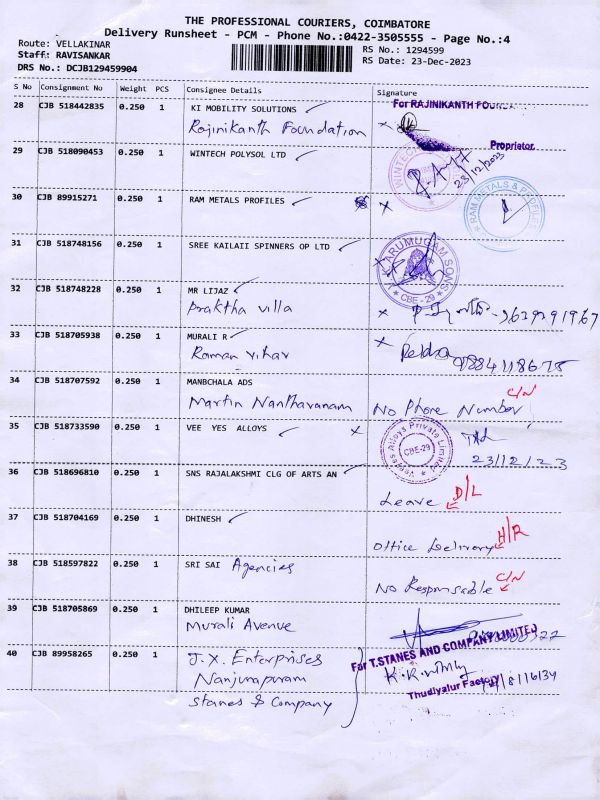 THE PROFESSIONAL COURIERS, COIMBATORE
Delivery Runsheet - PCM - Phone No.:0422-3505555 - Page No.:4
Route: VELLAKINAR
RS No.: 1294599
Staff: RAVISANKAR
RS Date: 23-Dec-2023
DRS No.: DCJB129459904
S No Consignment No Weight PCS Consignee Details Signature
28 CJB 518442835 0.250 1 KI MOBILITY SOLUTIONS
For RAJINIKANTH
Rajinikanth Foundation
Proprietor.
29 CJB 518090453 0.250 1 WINTECH POLYSOL LTD
WINTECH
23/12/2023
30 CJB 89915271 0.250 1 RAM METALS PROFILES
RAM METALS & PROFILES
31 CJB 518748156 0.250 1 SREE KAILAII SPINNERS OP LTD
V. ARUMUGAM SONS
CBE-29
32 CJB 518748228 0.250 1 MR LIJAZ
Praktha villa
33 CJB 518705938 0.250 1 MURALI R
Raman vihar
34 CJB 518707592 0.250 1 MANBCHALA ADS
C/N
Martin Nanthavanam No Phone Number
35 CJB 518733590 0.250 1 VEE YES ALLOYS
Veeyes Alloys Private Limited
CBE-29
23/12/23
36 CJB 518696810 0.250 1 SNS RAJALAKSHMI CLG OF ARTS AN
Leave D/L
37 CJB 518704169 0.250 1 DHINESH
Office Delivery H/R
38 CJB 518597822 0.250 1 SRI SAI Agencies
No Responsable C/N
39 CJB 518705869 0.250 1 DHILEEP KUMAR
Murali Avenue
40 CJB 89958265 0.250 1 J.X. Enterprises
For T.STANES AND COMPANY LIMITED
Nanjunapuram
Thudiyalur Factory
Stanes & Company